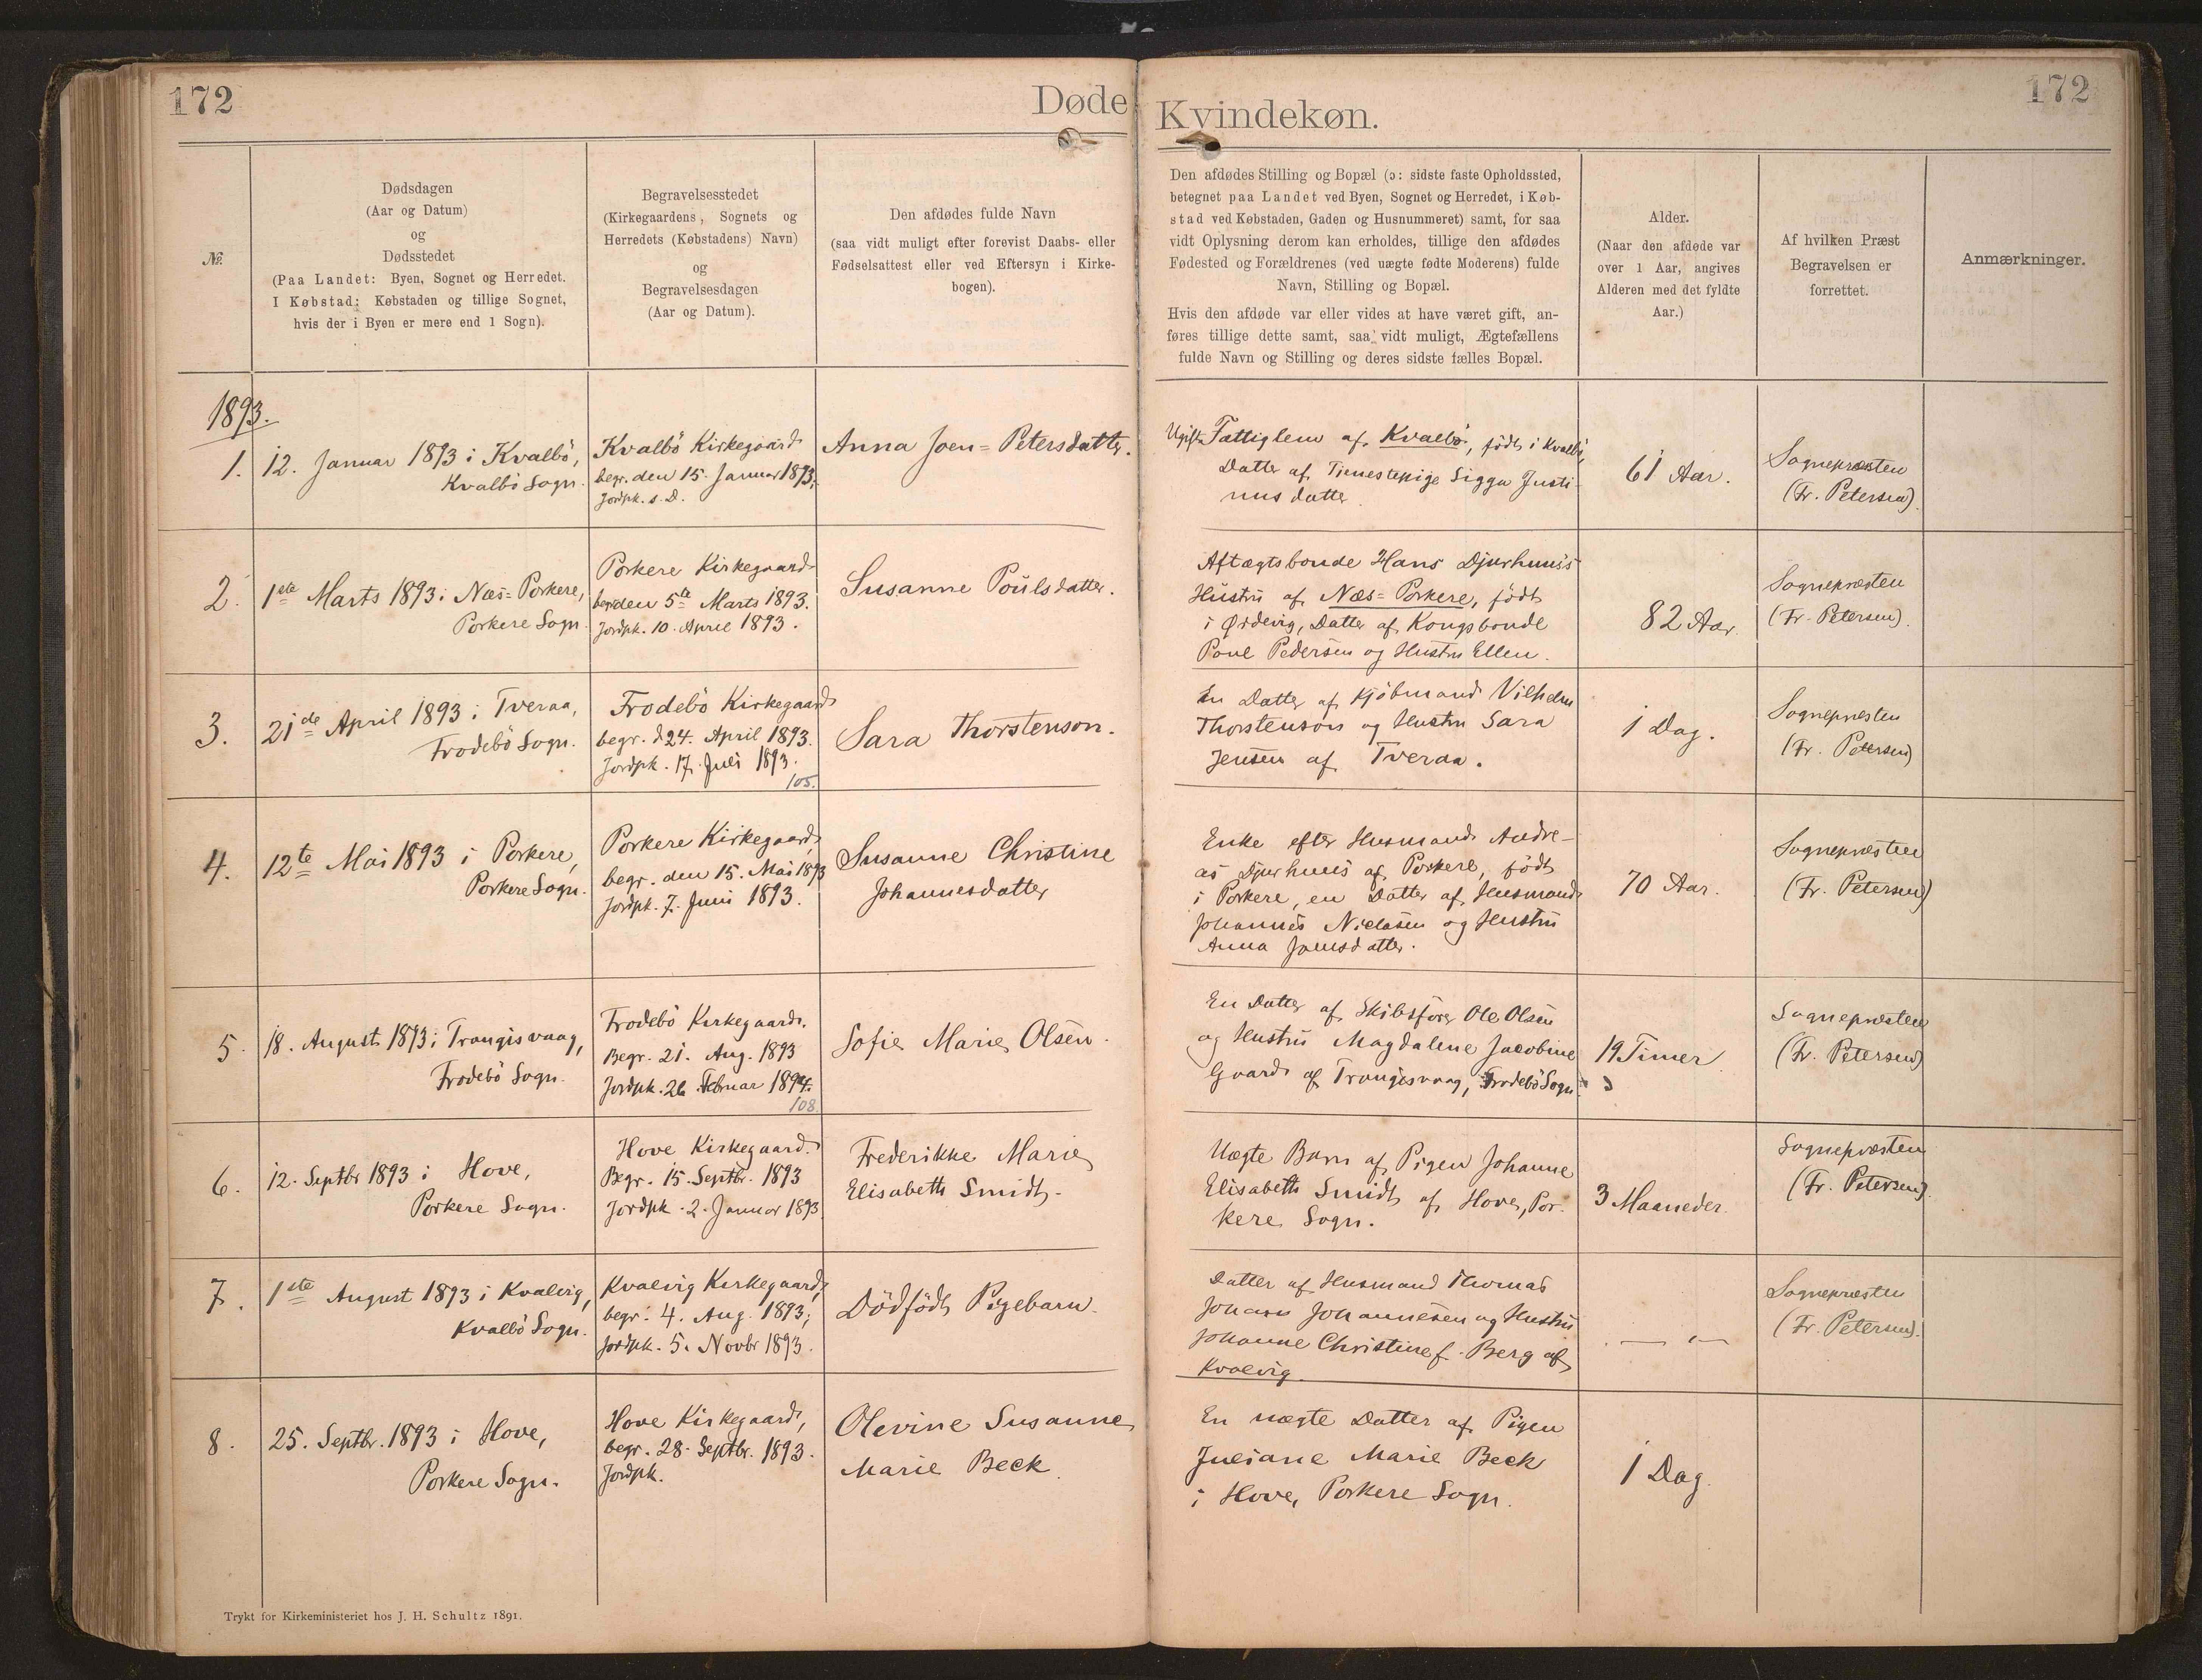 172
Døde
Kvindekøn.
172
№
Dødsdagen
(Aar og Datum)
og
Dødsstedet
(Paa Landet: Byen, Sognet og Herredet.
I Købstad: Købstaden og tillige Sognet,
hvis der i Byen er mere end 1 Sogn).
Begravelsesstedet
(Kirkegaardens, Sognets og
Herredets (Købstadens) Navn)
og
Begravelsesdagen
(Aar og Datum).
Den afdødes fulde Navn
(saa vidt muligt efter forevist Daabs- eller
Fødselsattest eller ved Eftersyn i Kirke-
bogen).
Den afdødes Stilling og Bopæl (ɔ: sidste faste Opholdssted,
betegnet paa Landet ved Byen, Sognet og Herredet, i Køb-
stad ved Købstaden, Gaden og Husnummeret) samt, for saa
vidt Oplysning derom kan erholdes, tillige den afdødes
Fødested og Forældrenes (ved uægte fødte Moderens) fulde
Navn, Stilling og Bopæl.
Hvis den afdøde var eller vides at have været gift, an-
føres tillige dette samt, saa vidt muligt, Ægtefællens
fulde Navn og Stilling og deres sidste fælles Bopæl.
Alder.
(Naar den afdøde var
over 1 Aar, angives
Alderen med det fyldte
Aar.)
Af hvilken Præst
Begravelsen er
forrettet.
Anmærkninger.
1893.
1.
12. Januar 1893 i Kvalbö,
Kvalbö Sogn.
Kvalbö Kirkegaard
begr. den 15. Januar 1893;
Jordpk. s. D.
Anna Joen=Petersdatter.
Ugift Fattiglem af Kvalbö, födt i Kvalbö,
Datter af Tjenestepige Sigga Justi-
nusdatter
61 Aar.
Sognepræsten
(Fr. Petersen).
2.
1ste Marts 1893 i Næs=Porkere,
Porkere Sogn.
Porkere Kirkegaard
begr. den 5te Marts 1893.
Jordpk. 10. April 1893.
Susanne Poulsdatter.
Aftægtsbonde Hans Djurhuus's
Hustru af Næs=Porkere, födt
i Ørdevig, Datter af Kongsbonde
Poul Pedersen og Hustru Ellen.
82 Aar.
Sognepræsten
(Fr. Petersen).
3.
21de April 1893 i Tveraa,
Frodebö Sogn.
Frodebö Kirkegaard
begr. d. 24. April 1893.
Jordpk. 17. Juli 1893.
105.
Sara Thorstenson.
En Datter af Kjöbmand Vilhelm
Thorstenson og Hustru Sara
Jensen af Tveraa.
1 Dag.
Sognepræsten
(Fr. Petersen)
4.
12te Mai 1893 i Porkere,
Porkere Sogn.
Porkere Kirkegaard,
begr. den 15. Mai 1893
Jordpk. 7. Juni 1893.
Susanne Christine
Johannesdatter
Enke efter Husmand Andre-
as Djurhuus af Porkere, födt
i Porkere, en Datter af Husmand
Johannes Niclasen og Hustru
Anna Joensdatter.
70 Aar.
Sognepræsten
(Fr. Petersen)
5.
18. August 1893 i Trangisvaag,
Frodebö Sogn.
Frodebö Kirkegaard.
Begr. 21. Aug. 1893
Jordpk. 26. Februar 1894.
108.
Sofie Marie Olsen.
En Datter af Skibsförer Ole Olsen
og Hustru Magdalene Jacobine
Gaard af Trangisvaag, Frodebö Sogn.
19 Timer.
Sognepræsten
(Fr. Petersen)
6.
12. Septbr 1893 i Hove,
Porkere Sogn.
Hove Kirkegaard.
Begr. 15. Septbr. 1893
Jordpk. 2. Januar 1893.
Frederikke Marie
Elisabeth Smidt.
Uægte Barn af Pigen Johanne
Elisabeth Smidt af Hove, Por-
kere Sogn.
3 Maaneder.
Sognepræsten
(Fr. Petersen).
7.
1ste August 1893 i Kvalvig,
Kvalbö Sogn.
Kvalvig Kirkegaard,
begr. 4. Aug. 1893;
Jordpk. 5. Novbr 1893.
Dödfödt Pigebarn.
Datter af Husmand Thomas
Johan Johannesen og Hustru
Johanne Christine f. Berg af
Kvalvig.
Sognepræsten
(Fr. Petersen).
8.
25. Septbr. 1893 i Hove,
Porkere Sogn.
Hove Kirkegaard,
begr. 28. Septbr. 1893.
Jordpk.
Olevine Susanne
Marie Beck
En uægte Datter af Pigen
Juliane Marie Beck
i Hove, Porkere Sogn.
1 Dag.
Trykt for Kirkeministeriet hos J. H. Schultz 1891.